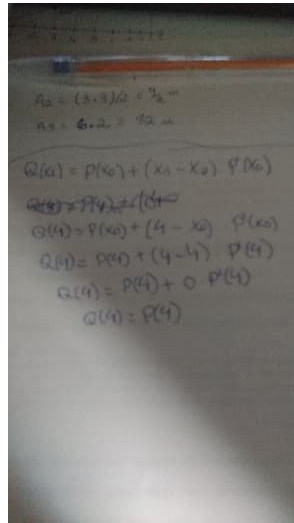 A2 = (3.3)/2 = 9/2 u
A3 = 6.2 = 12 u
Q(x1) = P(x0) + (x1 - x0) P'(x0)
Q(4) = P(x0) + (4 - x0) P'(x0)
Q(4) = P(4) + (4-4) P'(4)
Q(4) = P(4) + 0 P'(4)
Q(4) = P(4)